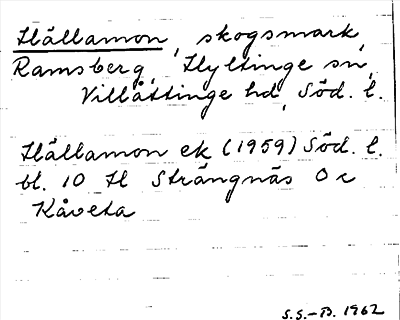 Hällamon, skogsmark,
Ramsberg, Hyltinge sn,
Villåttinge hd, Söd. l.
Hällamon ek (1959) Söd. l.
bl. 10 H Strängnäs O c
Kåveta
S.S.-B. 1962